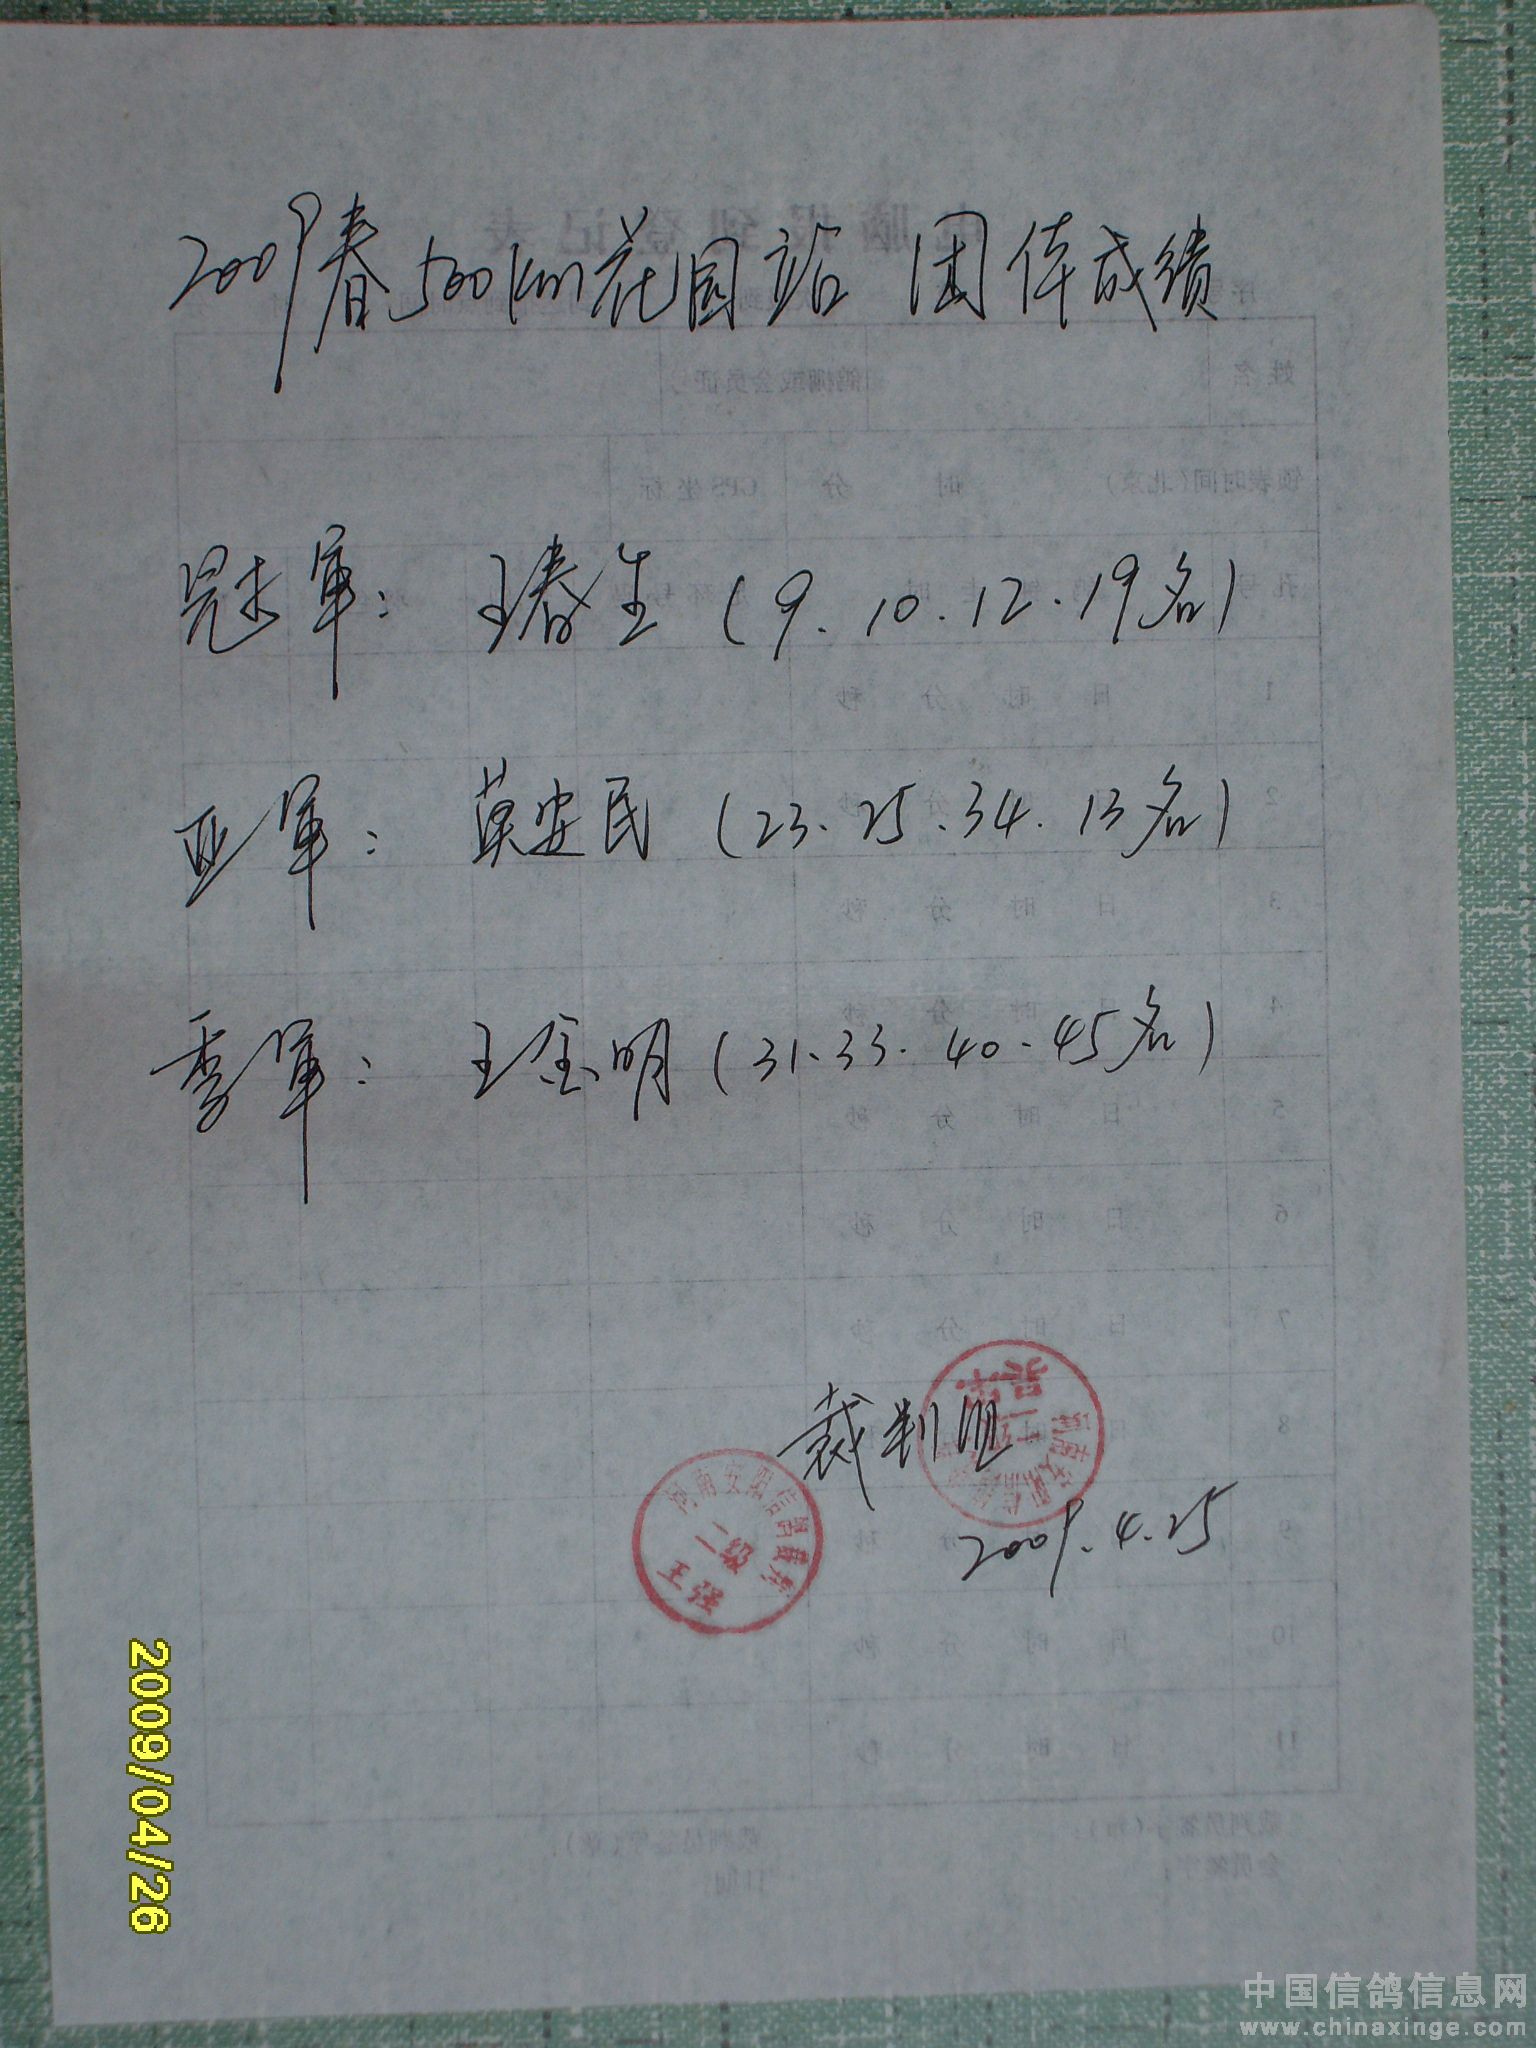 2009春500km花园站 团体成绩
冠军: 王春生 (9. 10. 12. 19名)
亚军: 莫安民 (23. 25. 34. 13名)
季军: 王金明 (31. 33. 40. 45名)
裁判组
河南安阳信鸽裁判
二级
王强
2009.4.25
2009/04/26
中国信鸽信息网
www.chinaxinge.com